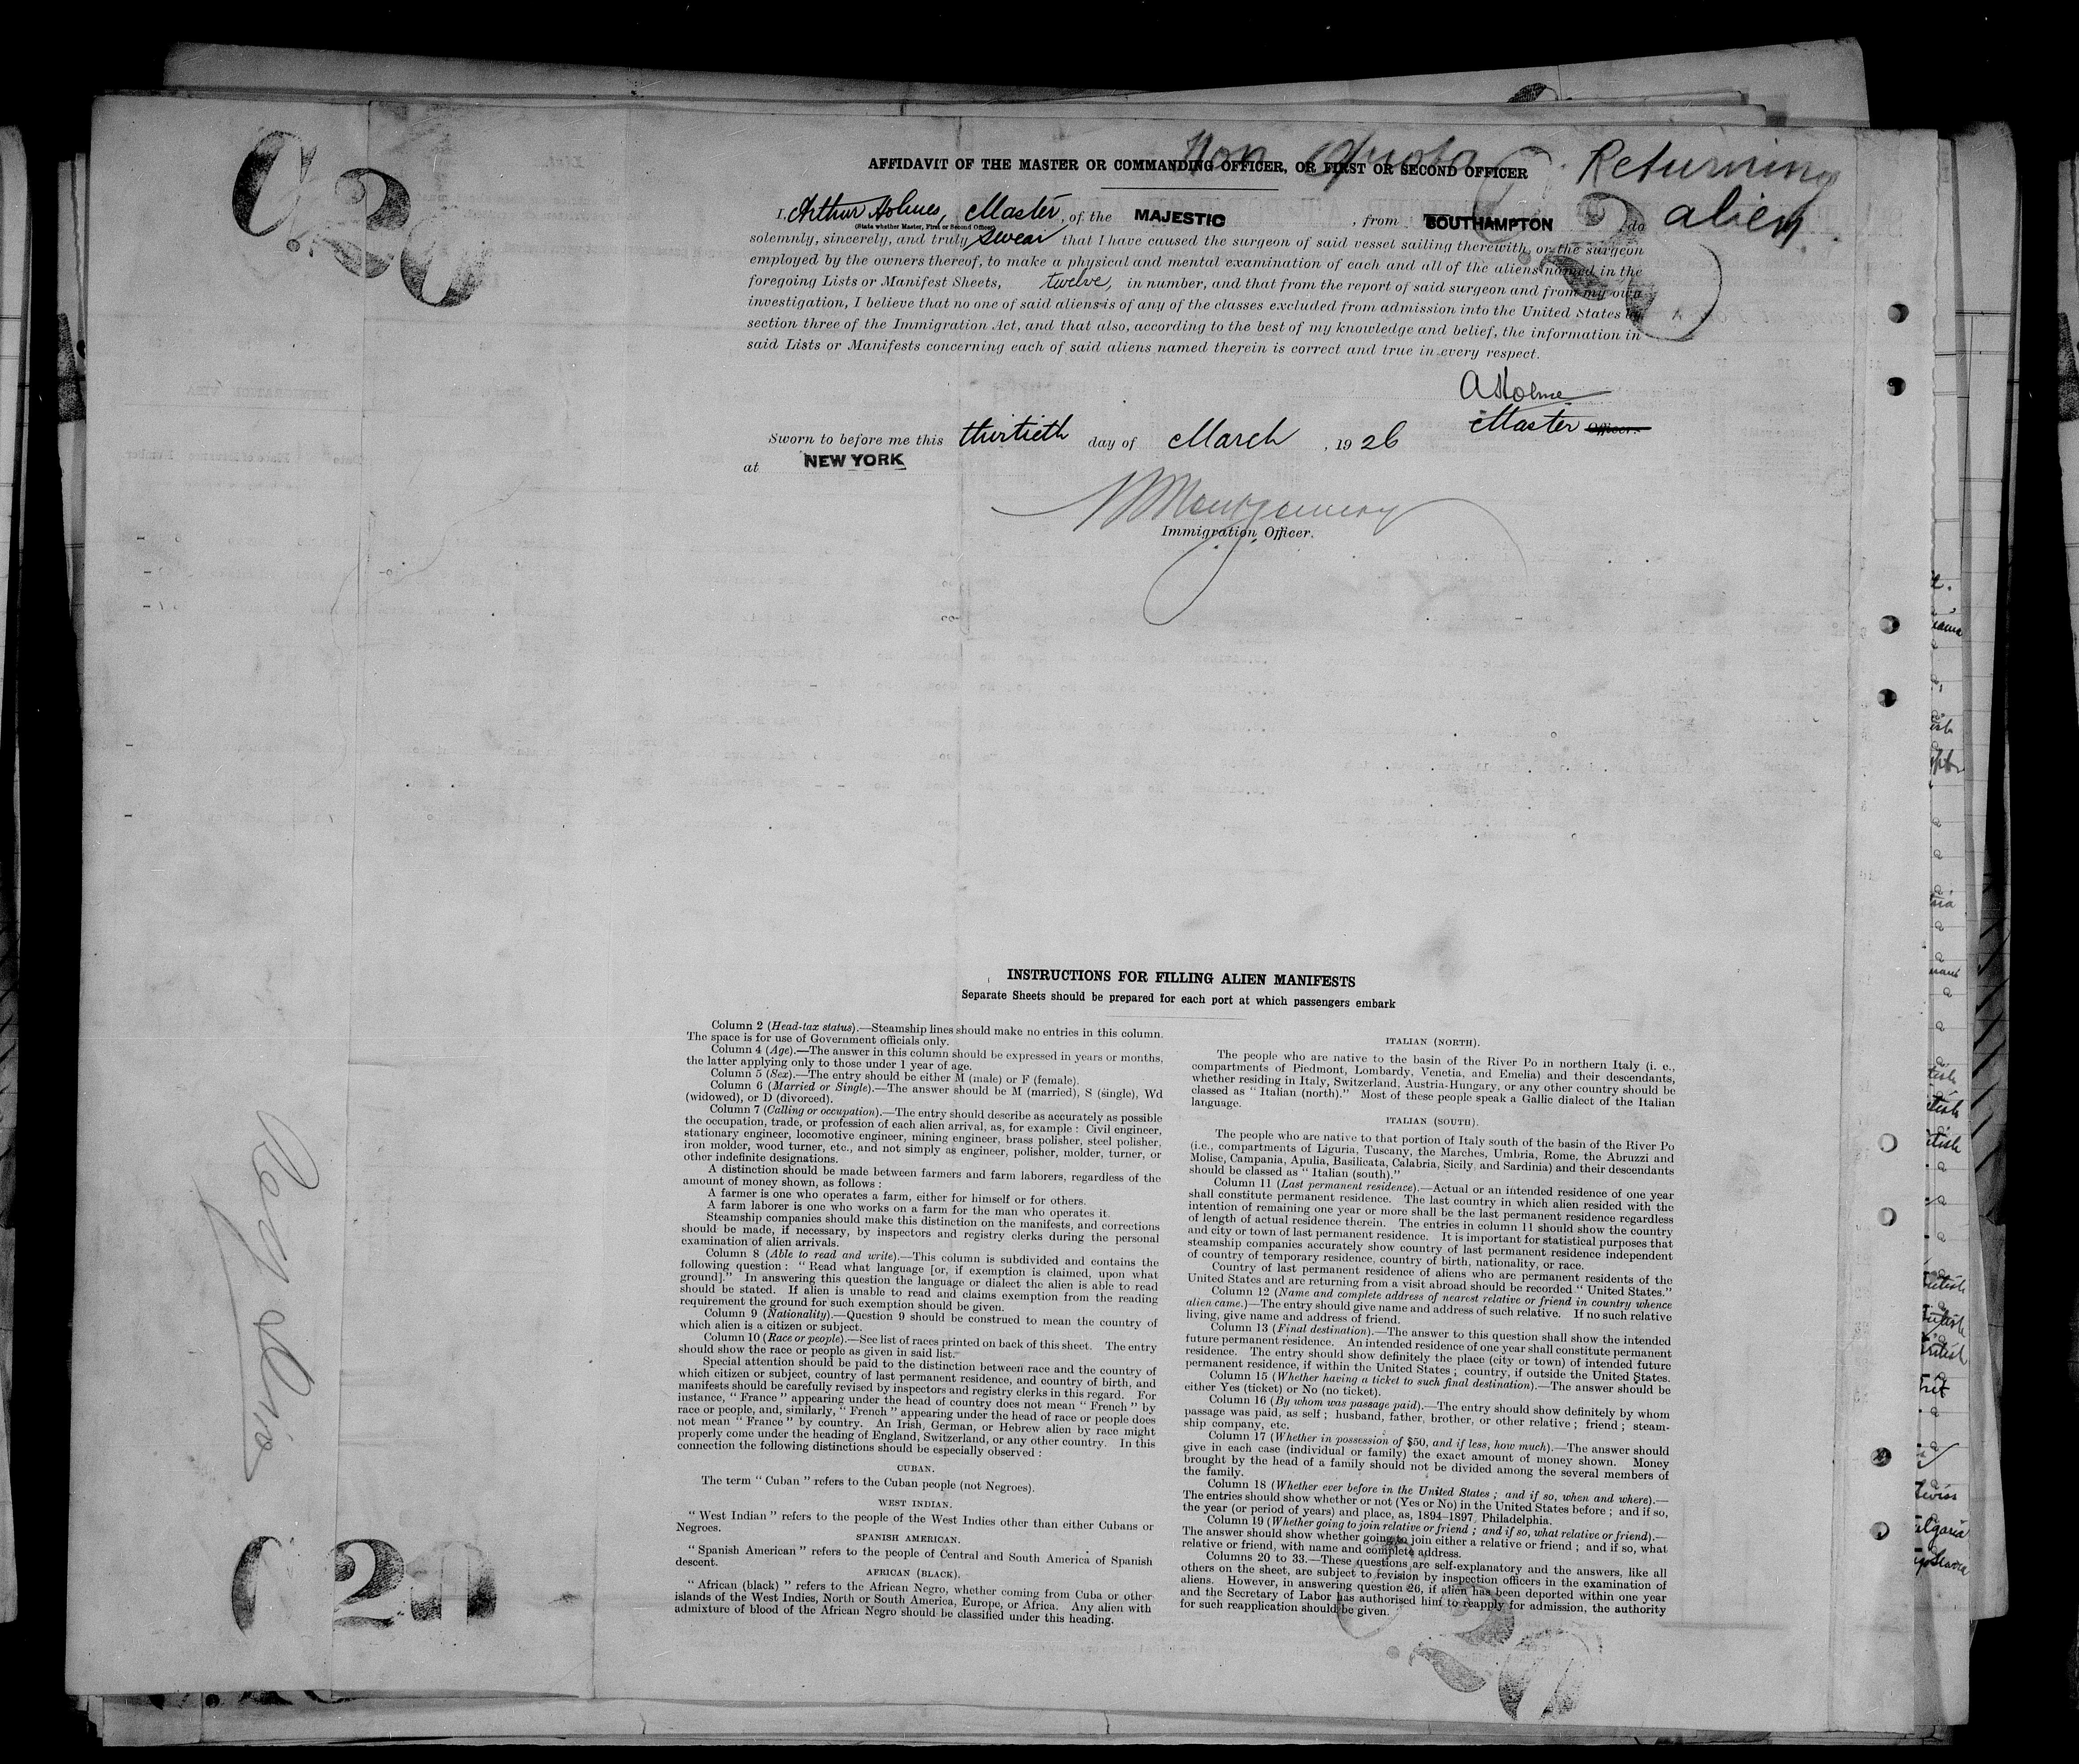 Non Quota
Returning
alien
AFFIDAVIT OF THE MASTER OR COMMANDING OFFICER, OR FIRST OR SECOND OFFICER
I, Arthur Holmes, Master, of the MAJESTIC, from SOUTHAMPTON, do
(State whether Master, First or Second Officer)
solemnly, sincerely, and truly swear that I have caused the surgeon of said vessel sailing therewith, or the surgeon
employed by the owners thereof, to make a physical and mental examination of each and all of the aliens named in the
foregoing Lists or Manifest Sheets, twelve, in number, and that from the report of said surgeon and from my own
investigation, I believe that no one of said aliens is of any of the classes excluded from admission into the United States by
section three of the Immigration Act, and that also, according to the best of my knowledge and belief, the information in
said Lists or Manifests concerning each of said aliens named therein is correct and true in every respect.
A Holme
Master Officer.
Sworn to before me this thirtieth day of March, 1926
at NEW YORK
Montgomery
Immigration Officer.
INSTRUCTIONS FOR FILLING ALIEN MANIFESTS
Separate Sheets should be prepared for each port at which passengers embark
Column 2 (Head-tax status).—Steamship lines should make no entries in this column.
The space is for use of Government officials only.
Column 4 (Age).—The answer in this column should be expressed in years or months,
the latter applying only to those under 1 year of age.
Column 5 (Sex).—The entry should be either M (male) or F (female).
Column 6 (Married or Single).—The answer should be M (married), S (single), Wd
(widowed), or D (divorced).
Column 7 (Calling or occupation).—The entry should describe as accurately as possible
the occupation, trade, or profession of each alien arrival, as, for example : Civil engineer,
stationary engineer, locomotive engineer, mining engineer, brass polisher, steel polisher,
iron molder, wood turner, etc., and not simply as engineer, polisher, molder, turner, or
other indefinite designations.
A distinction should be made between farmers and farm laborers, regardless of the
amount of money shown, as follows :
A farmer is one who operates a farm, either for himself or for others.
A farm laborer is one who works on a farm for the man who operates it.
Steamship companies should make this distinction on the manifests, and corrections
should be made, if necessary, by inspectors and registry clerks during the personal
examination of alien arrivals.
Column 8 (Able to read and write).—This column is subdivided and contains the
following question : “ Read what language [or, if exemption is claimed, upon what
ground].” In answering this question the language or dialect the alien is able to read
should be stated. If alien is unable to read and claims exemption from the reading
requirement the ground for such exemption should be given.
Column 9 (Nationality).—Question 9 should be construed to mean the country of
which alien is a citizen or subject.
Column 10 (Race or people).—See list of races printed on back of this sheet. The entry
should show the race or people as given in said list.
Special attention should be paid to the distinction between race and the country of
which citizen or subject, country of last permanent residence, and country of birth, and
manifests should be carefully revised by inspectors and registry clerks in this regard. For
instance, “ France ” appearing under the head of country does not mean “ French ” by
race or people, and, similarly, “ French ” appearing under the head of race or people does
not mean “ France ” by country. An Irish, German, or Hebrew alien by race might
properly come under the heading of England, Switzerland, or any other country. In this
connection the following distinctions should be especially observed :
CUBAN.
The term “ Cuban ” refers to the Cuban people (not Negroes).
WEST INDIAN.
“ West Indian ” refers to the people of the West Indies other than either Cubans or
Negroes.
SPANISH AMERICAN.
“ Spanish American ” refers to the people of Central and South America of Spanish
descent.
AFRICAN (BLACK).
“ African (black) ” refers to the African Negro, whether coming from Cuba or other
islands of the West Indies, North or South America, Europe, or Africa. Any alien with
admixture of blood of the African Negro should be classified under this heading.
ITALIAN (NORTH).
The people who are native to the basin of the River Po in northern Italy (i. e.,
compartments of Piedmont, Lombardy, Venetia, and Emelia) and their descendants,
whether residing in Italy, Switzerland, Austria-Hungary, or any other country should be
classed as “ Italian (north).” Most of these people speak a Gallic dialect of the Italian
language.
ITALIAN (SOUTH).
The people who are native to that portion of Italy south of the basin of the River Po
(i.e., compartments of Liguria, Tuscany, the Marches, Umbria, Rome, the Abruzzi and
Molise, Campania, Apulia, Basilicata, Calabria, Sicily, and Sardinia) and their descendants
should be classed as “ Italian (south).”
Column 11 (Last permanent residence).—Actual or an intended residence of one year
shall constitute permanent residence. The last country in which alien resided with the
intention of remaining one year or more shall be the last permanent residence regardless
of length of actual residence therein. The entries in column 11 should show the country
and city or town of last permanent residence. It is important for statistical purposes that
steamship companies accurately show country of last permanent residence independent
of country of temporary residence, country of birth, nationality, or race.
Country of last permanent residence of aliens who are permanent residents of the
United States and are returning from a visit abroad should be recorded “ United States.”
Column 12 (Name and complete address of nearest relative or friend in country whence
alien came.)—The entry should give name and address of such relative. If no such relative
living, give name and address of friend.
Column 13 (Final destination).—The answer to this question shall show the intended
future permanent residence. An intended residence of one year shall constitute permanent
residence. The entry should show definitely the place (city or town) of intended future
permanent residence, if within the United States ; country, if outside the United States.
Column 15 (Whether having a ticket to such final destination).—The answer should be
either Yes (ticket) or No (no ticket).
Column 16 (By whom was passage paid).—The entry should show definitely by whom
passage was paid, as self ; husband, father, brother, or other relative ; friend ; steam-
ship company, etc.
Column 17 (Whether in possession of $50, and if less, how much).—The answer should
give in each case (individual or family) the exact amount of money shown. Money
brought by the head of a family should not be divided among the several members of
the family.
Column 18 (Whether ever before in the United States ; and if so, when and where).—
The entries should show whether or not (Yes or No) in the United States before ; and if so,
the year (or period of years) and place, as, 1894–1897, Philadelphia.
Column 19 (Whether going to join relative or friend ; and if so, what relative or friend).—
The answer should show whether going to join either a relative or friend ; and if so, what
relative or friend, with name and complete address.
Columns 20 to 33.—These questions are self-explanatory and the answers, like all
others on the sheet, are subject to revision by inspection officers in the examination of
aliens. However, in answering question 26, if alien has been deported within one year
and the Secretary of Labor has authorised him to reapply for admission, the authority
for such reapplication should be given.